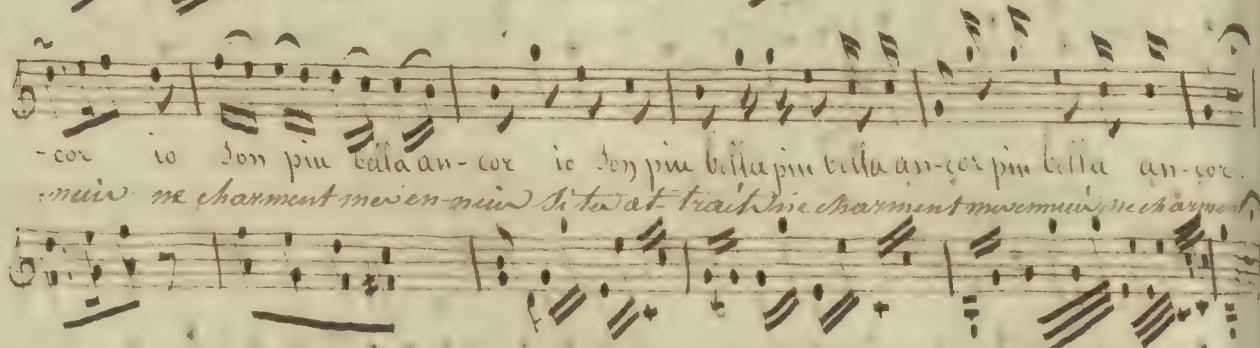 -cor io son piu bella an-cor io son piu bella piu bella an-cor piu bella an-cor.
-nuis ne charment mes en-nuis si tes at traits ne charment mes ennuis ne charment